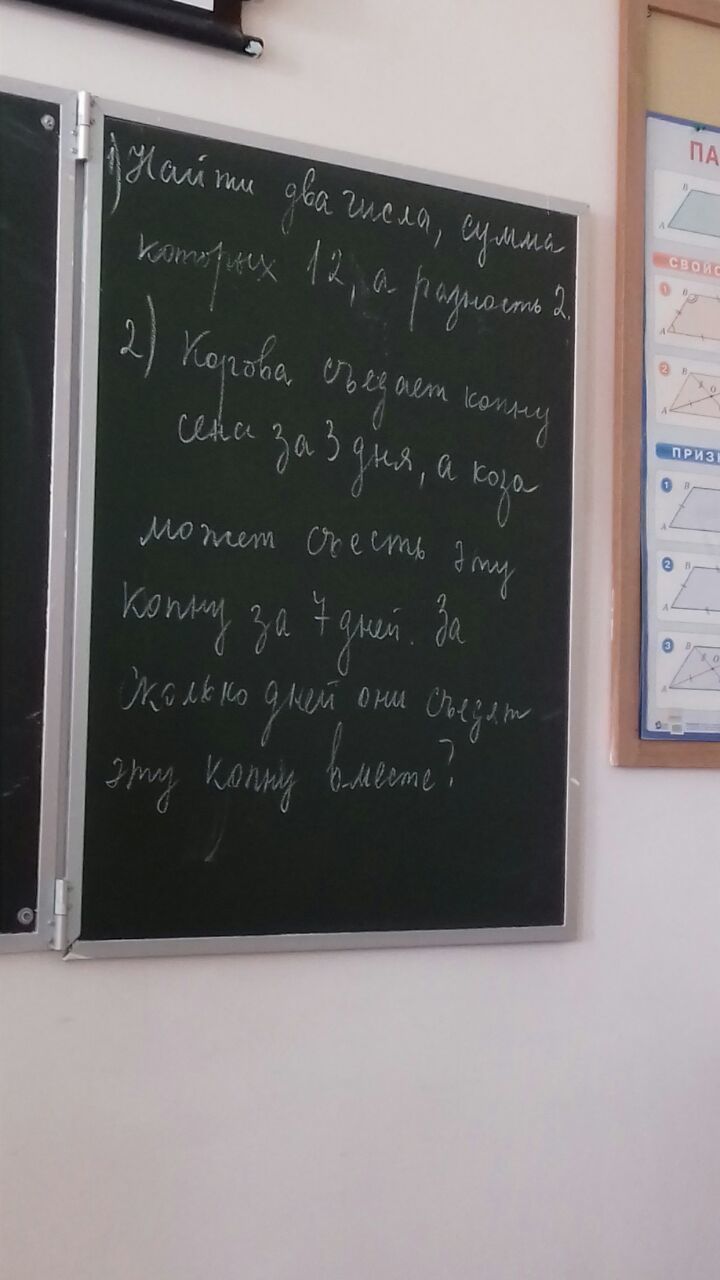 1) Найти два числа, сумма
которых 12, а разность 2.
2) Корова съедает копну
сена за 3 дня, а коза
может съесть эту
копну за 7 дней. За
сколько дней они съедят
эту копну вместе?
ПА
B
A
СВОЙС
1
B
A
2
B
O
A
ПРИЗН
1
B
A
2
B
A
3
B
O
A